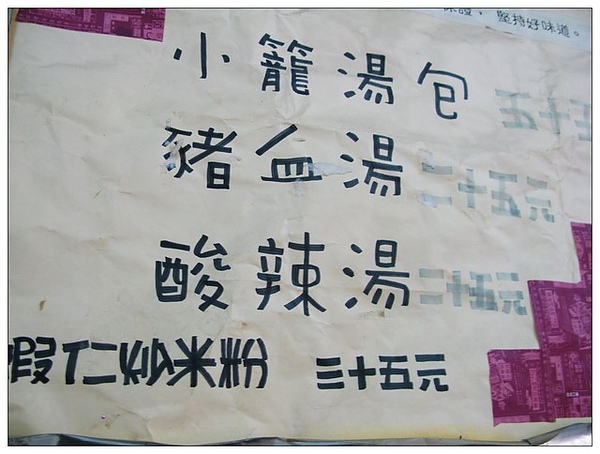 堅持好味道。
小籠湯包 五十五
豬血湯 二十五元
酸辣湯 二十五元
蝦仁炒米粉 三十五元